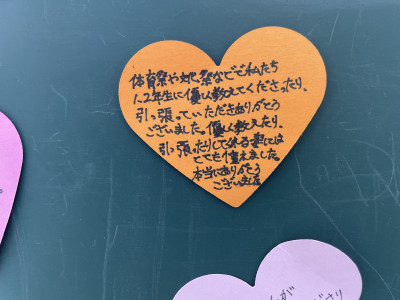 体育祭や文化祭などで私たち
1、2年生に優しく教えてくださったり、
引っ張っていただきありがとう
ございました。優しく教えたり、
引っ張ったりして作る姿には
とても憧れました。
本当にありがとう
ございました
が